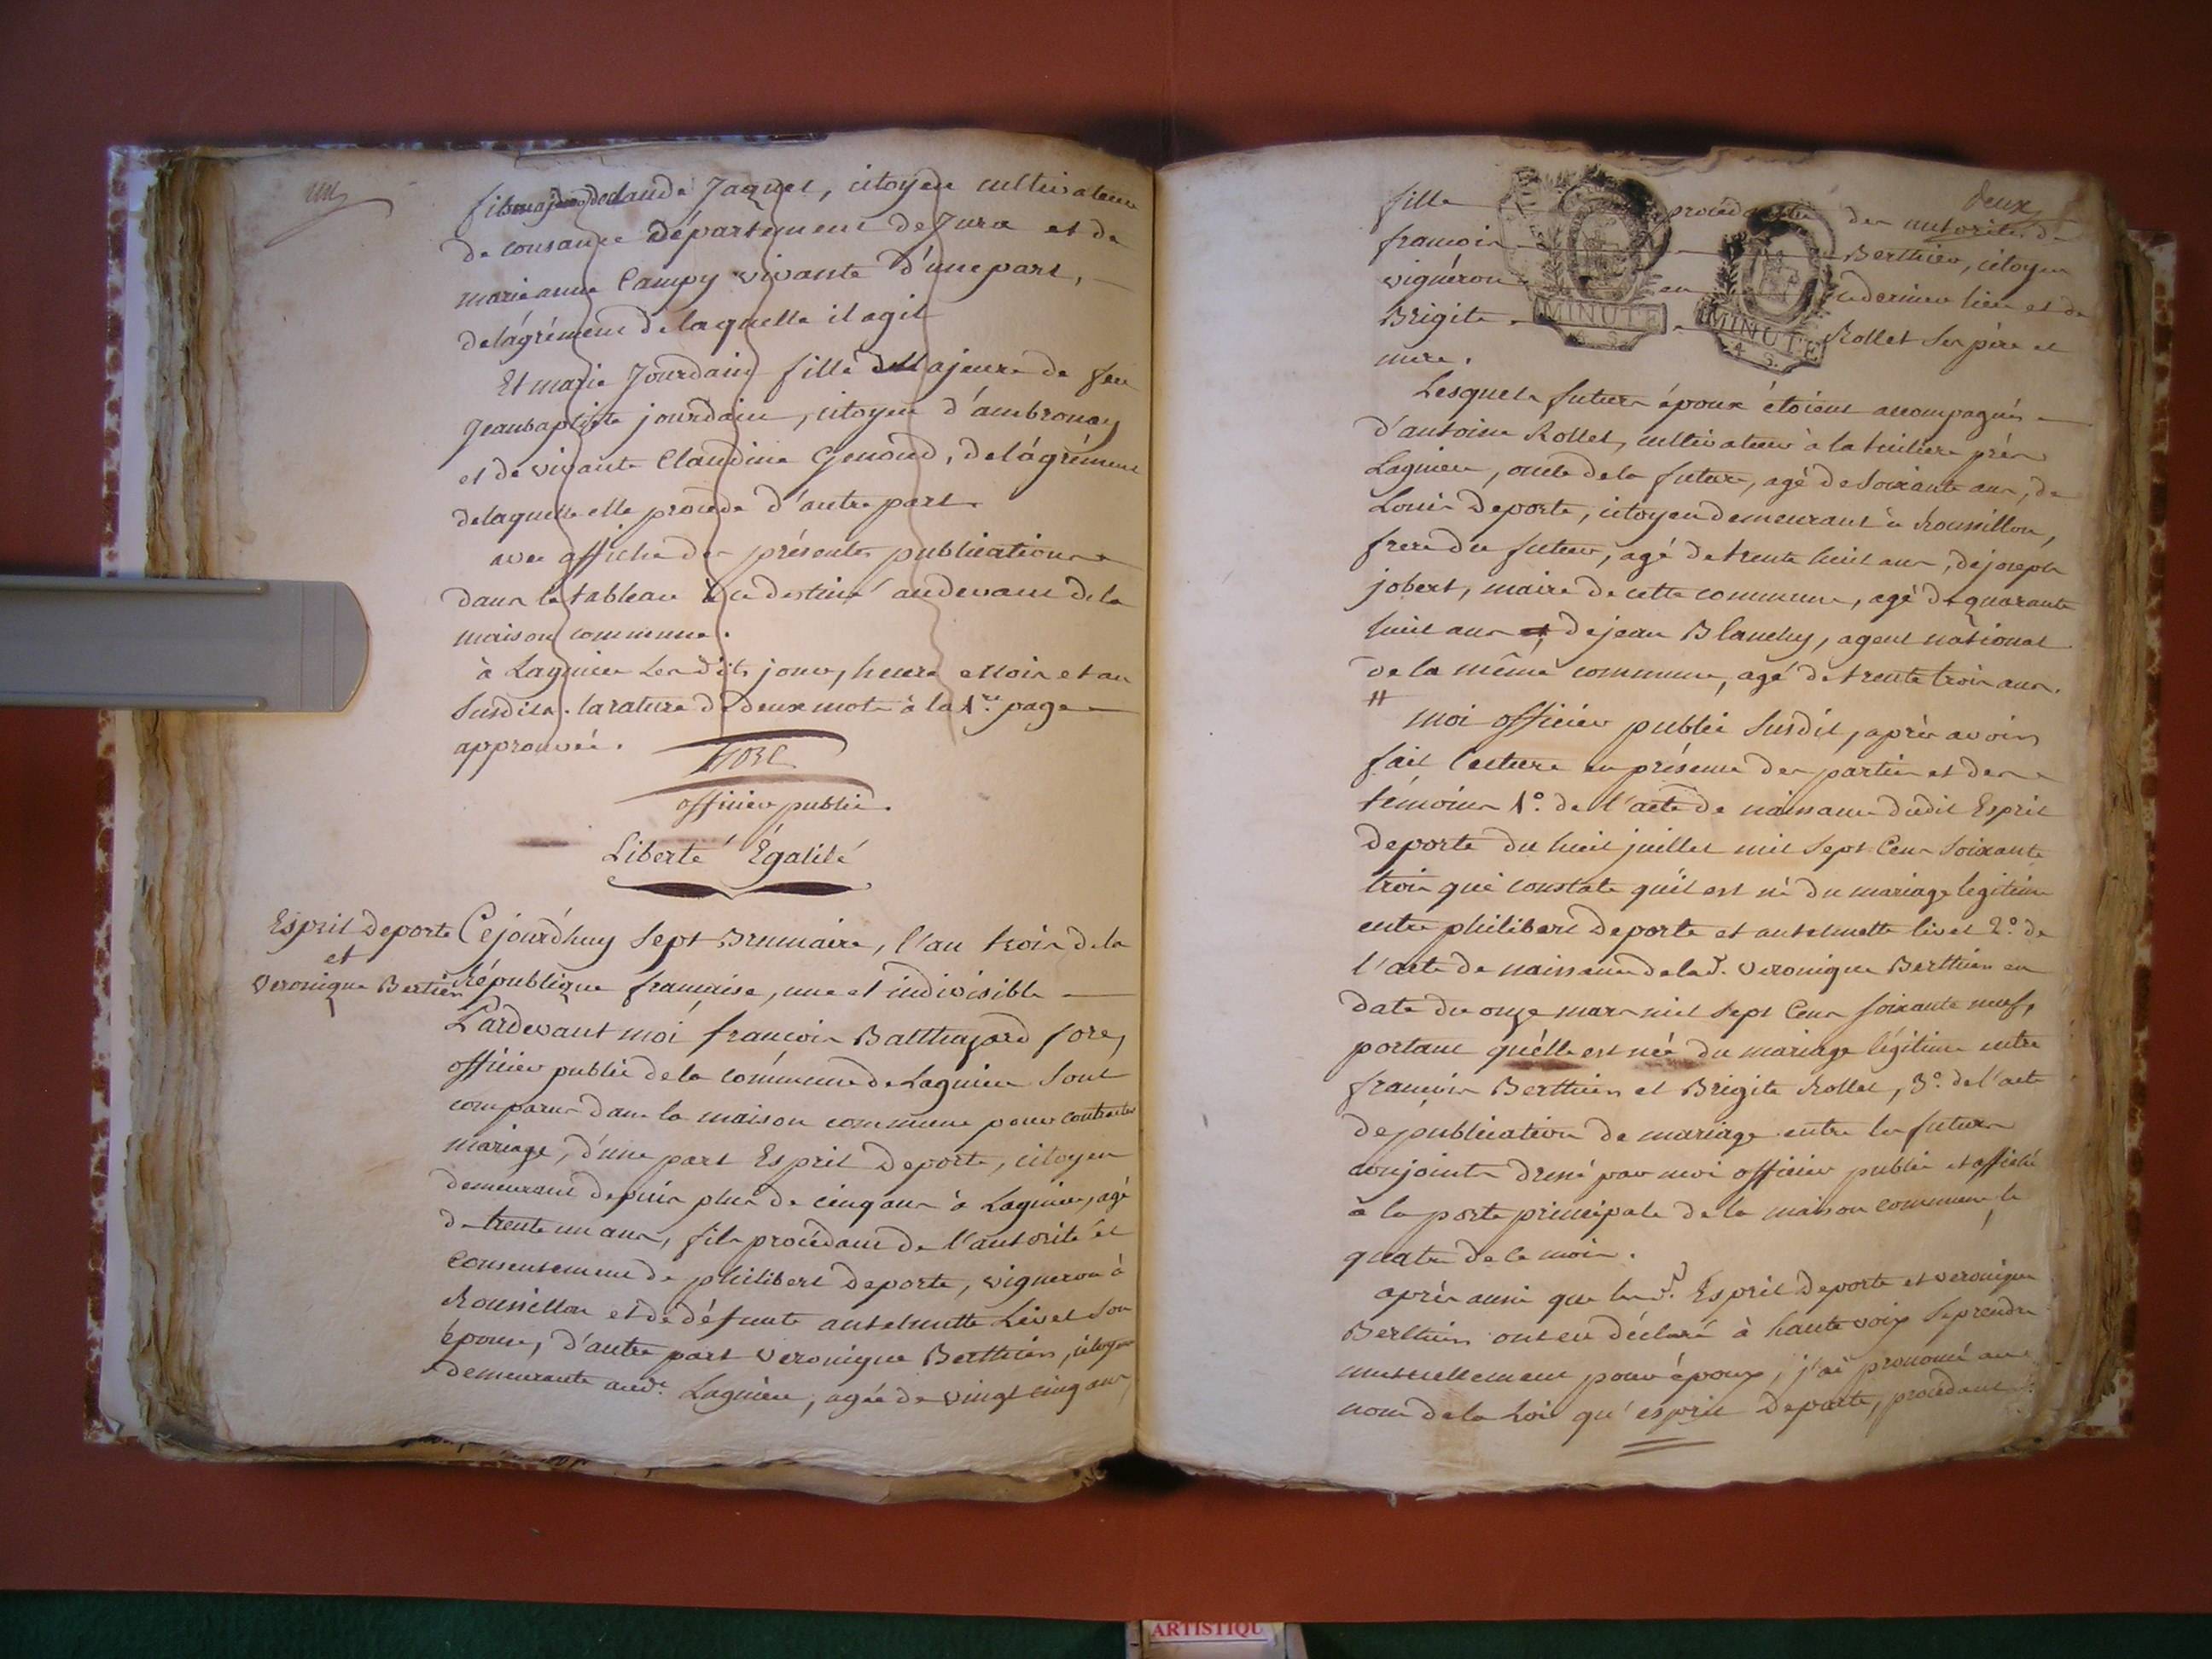 fils majeur de claude Jaquet, citoyen cultivateur
de cousance département de Jura et de
marie anne Campy vivante d'une part,
de l'agrément de laquelle il agit
Et marie Jourdain fille Majeure de feu
Jean baptiste jourdain, citoyen d'ambronay
et de vivante Claudine Genoud, de l'agrément
de laquelle elle procede d'autre part.
avec affiche des présentes publications
dans le tableau à ce destiné au devant de la
maison commune.
à Lagnieu les dits jour, heure et mois et an
susdits. la rature de deux mots à la 1re page
approuvée.
officier public.
Liberté Égalité
Esprit Deporte
et
Veronique Bertier
Cejourd'huy sept Brumaire, l'an trois de la
République française, une et indivisible
Pardevant moi françois Balthazard fore,
officier public de la commune de Lagnieu sont
comparus dans la maison commune pour contracter
mariage, d'une part Esprit Deporte, citoyen
demeurant depuis plus de cinq ans à Lagnieu, agé
de trente un ans, fils procédant de l'autorité et
consentement de philibert Deporte, vigneron à
Roussillon et de défunte anthelmette Livet son
épouse, d'autre part Veronique Berthier, citoyenne
demeurante aud. Lagnieu, agée de vingt cinq ans,
deux
fille procédante des autorités de
françois Berthier, citoyen
vignéron en ce dernier lieu et de
Brigite Rollet ses père et
mere.
MINUTE
MINUTE
4 S.
Lesquels futurs époux étoient accompagnés
d'antoine Rollet, cultivateur à la tuiliere près
Lagnieu, oncle de la future, agé de soixante ans, de
Louis Deporte, citoyen demeurant à Roussillon,
frere du futur, agé de trente huit ans, de joseph
jobert, maire de cette commune, agé de quarante
huit ans et de jean Blanchy, agent national
de la même commune, agé de trente trois ans.
moi officier public susdit, après avoir
fait lecture en présence des parties et des
témoins 1° de l'acte de naissance dudit Esprit
Deporte du huit juillet mil sept cens soixante
trois qui constate qu'il est né du mariage legitime
entre philibert Deporte et anthelmette livet 2° de
l'acte de naissance de la d. Veronique Berthier en
date du onze mars mil sept cens soixante neuf,
portant qu'elle est née du mariage légitime entre
françois Berthier et Brigite Rollet, 3° de l'acte
de publication de mariage entre les futurs
conjoints dressé par moi officier public et affiché
à la porte principale de la maison commune, le
quatre de ce mois.
après aussi que les d. Esprit Deporte et veronique
Berthier ont eu déclaré à haute voix se prendre
mutuellement pour époux, j'ai prononcé au
nom de la Loi qu'esprit Deporte, procédant
ARTISTIQU